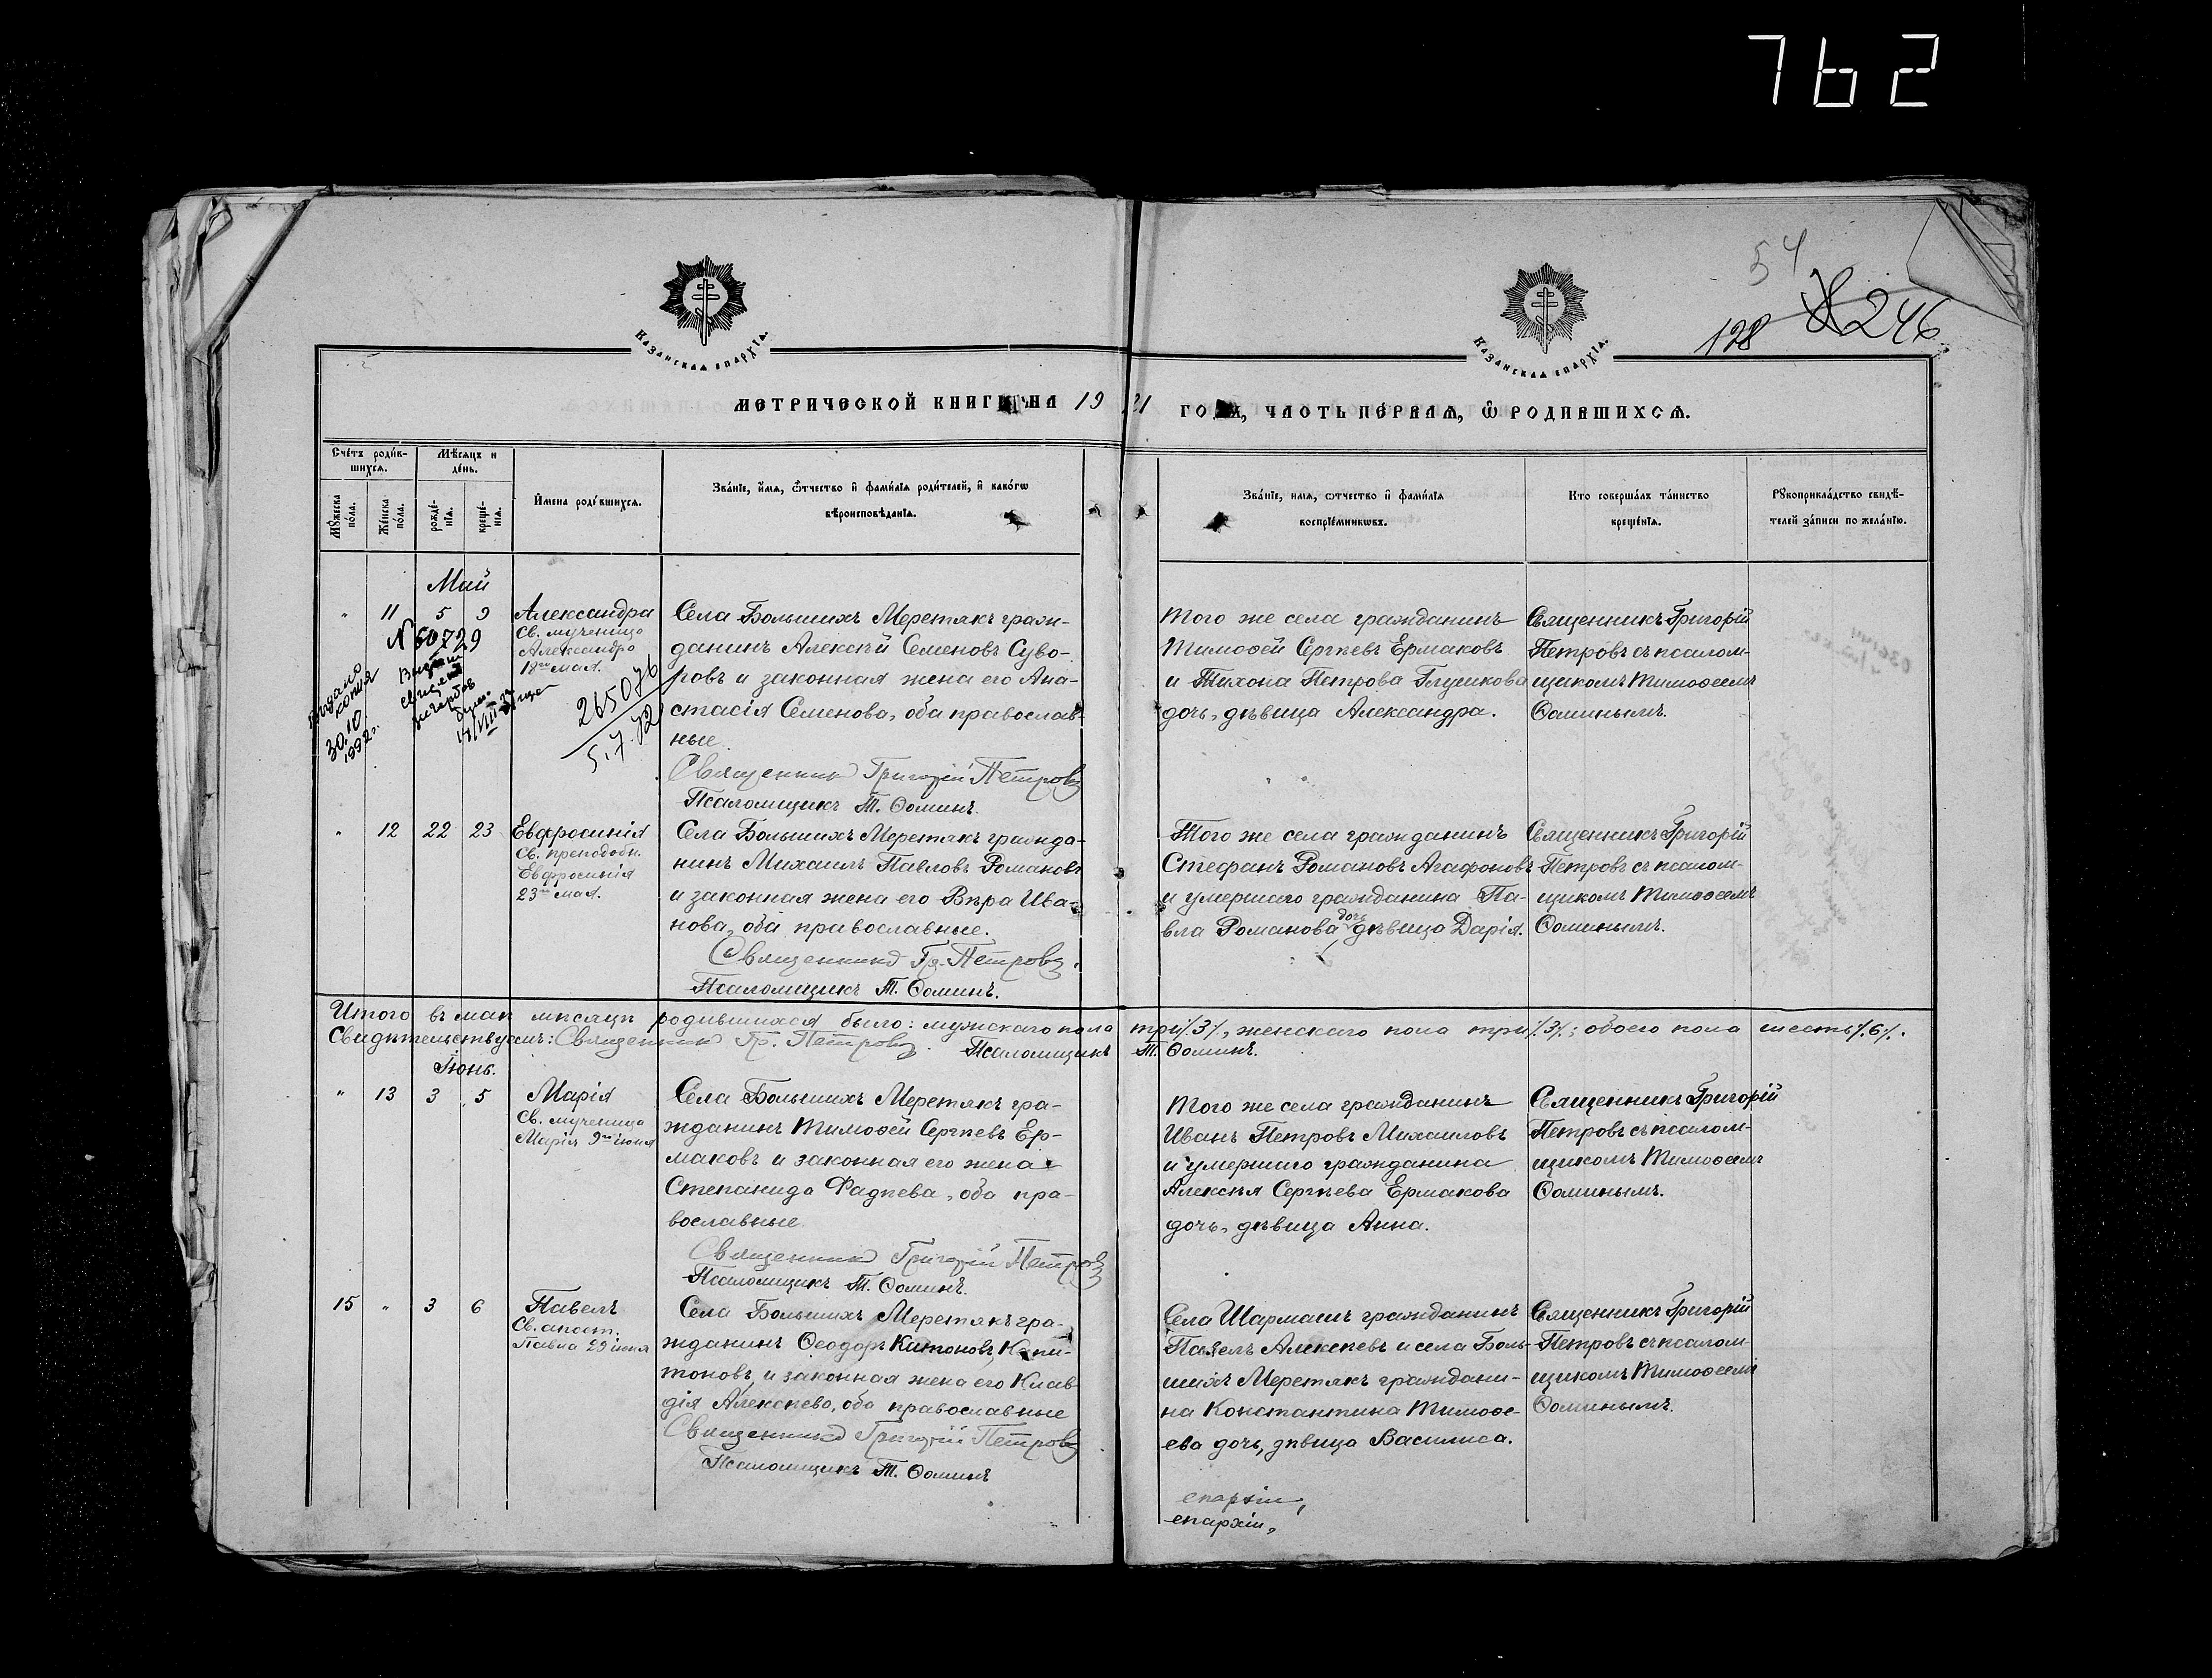 762
54
128 246
Казанская епархїа.
Казанская епархїа.
МЕТРИЧЕСКОЙ КНИГИ НА 19 21 ГОДА, ЧАСТЬ ПЕРВАЯ, Ѽ РОДИВШИХСЯ.
Сче́тъ роди́в-
шихся.
Мѣ́сяцъ и
де́нь.
Мꙋ́жеска
по́ла.
Же́нска
по́ла.
рожде́-
нїя.
креще́-
нїя.
И́мена роди́вшихся.
Зва́нїе, и́мя, ѻ́тчество и҆ фами́лїя роди́телей, и҆ како́гѡ
вѣроисповѣ́данїя.
Зва́нїе, имя, ѻтчество и҆ фами́лїя
воспрїе́мникѡвъ.
Кто соверша́лъ та́инство
креще́нїя.
Рꙋкоприкла́дство свидѣ́-
телей за́писи по жела́нїю.
Май
" 11 5 9
Александра
Св. мученица
Александра
18го мая.
№ 60729
Выдана
копия
30.10
1992г.
265076
5.7.72
Села Большихъ Меретякъ граж-
данинъ Алексѣй Семеновъ Суво-
ровъ и законная жена его Ана-
стасія Семенова, оба православ-
ные.
Священникъ Григорій Петровъ
Псаломщикъ Т. Ѳоминъ.
Того же села гражданинъ
Тимоѳей Сергѣевъ Ермаковъ
и Тихона Петрова Глушкова
дочь, дѣвица Александра.
Священникъ Григорій
Петровъ съ псалом-
щикомъ Тимоѳеемъ
Ѳоминымъ.
" 12 22 23
Евфросинія
Св. преподобн.
Евфросинія
23го мая.
Села Большихъ Меретякъ гражда-
нинъ Михаилъ Павловъ Романовъ
и законная жена его Вѣра Ива-
нова, оба православные.
Священникъ Гр. Петровъ.
Псаломщикъ Т. Ѳоминъ.
Того же села гражданинъ
Стефанъ Романовъ Агафоновъ
и умершаго гражданина Па-
вла Романова дочь дѣвица Дарія.
Священникъ Григорій
Петровъ съ псалом-
щикомъ Тимоѳеемъ
Ѳоминымъ.
Итого въ маѣ мѣсяцѣ родившихся было: мужскаго пола три /.3/., женскаго пола три /.3/.; обоего пола шесть /.6/.
Свидѣтельствуемъ: Священникъ Гр. Петровъ. Псаломщикъ Т. Ѳоминъ.
Іюнь.
" 13 3 5
Марія
Св. мученица
Марія 9го іюня
Села Большихъ Меретякъ гра-
жданинъ Тимоѳей Сергѣевъ Ер-
маковъ и законная его жена
Степанида Фадѣева, оба пра-
вославные
Священникъ Григорій Петровъ
Псаломщикъ Т. Ѳоминъ.
Того же села гражданинъ
Иванъ Петровъ Михаиловъ
и умершаго гражданина
Алексѣя Сергѣева Ермакова
дочь, дѣвица Анна.
Священникъ Григорій
Петровъ съ псалом-
щикомъ Тимоѳеемъ
Ѳоминымъ.
15 " 3 6
Павелъ
Св. апост.
Павла 29 іюня
Села Большихъ Меретякъ гра-
жданинъ Ѳеодоръ Китоновъ, Капи-
тоновъ, и законная жена его Клав-
дія Алексѣева, оба православные
Священникъ Григорій Петровъ
Псаломщикъ Т. Ѳоминъ
Села Шармашъ гражданинъ
Павелъ Алексѣевъ и села Боль-
шихъ Меретякъ граждани-
на Константина Тимоѳе-
ева дочь, дѣвица Василиса.
Священникъ Григорій
Петровъ съ псалом-
щикомъ Тимоѳеемъ
Ѳоминымъ.
епархіи,
епархіи,